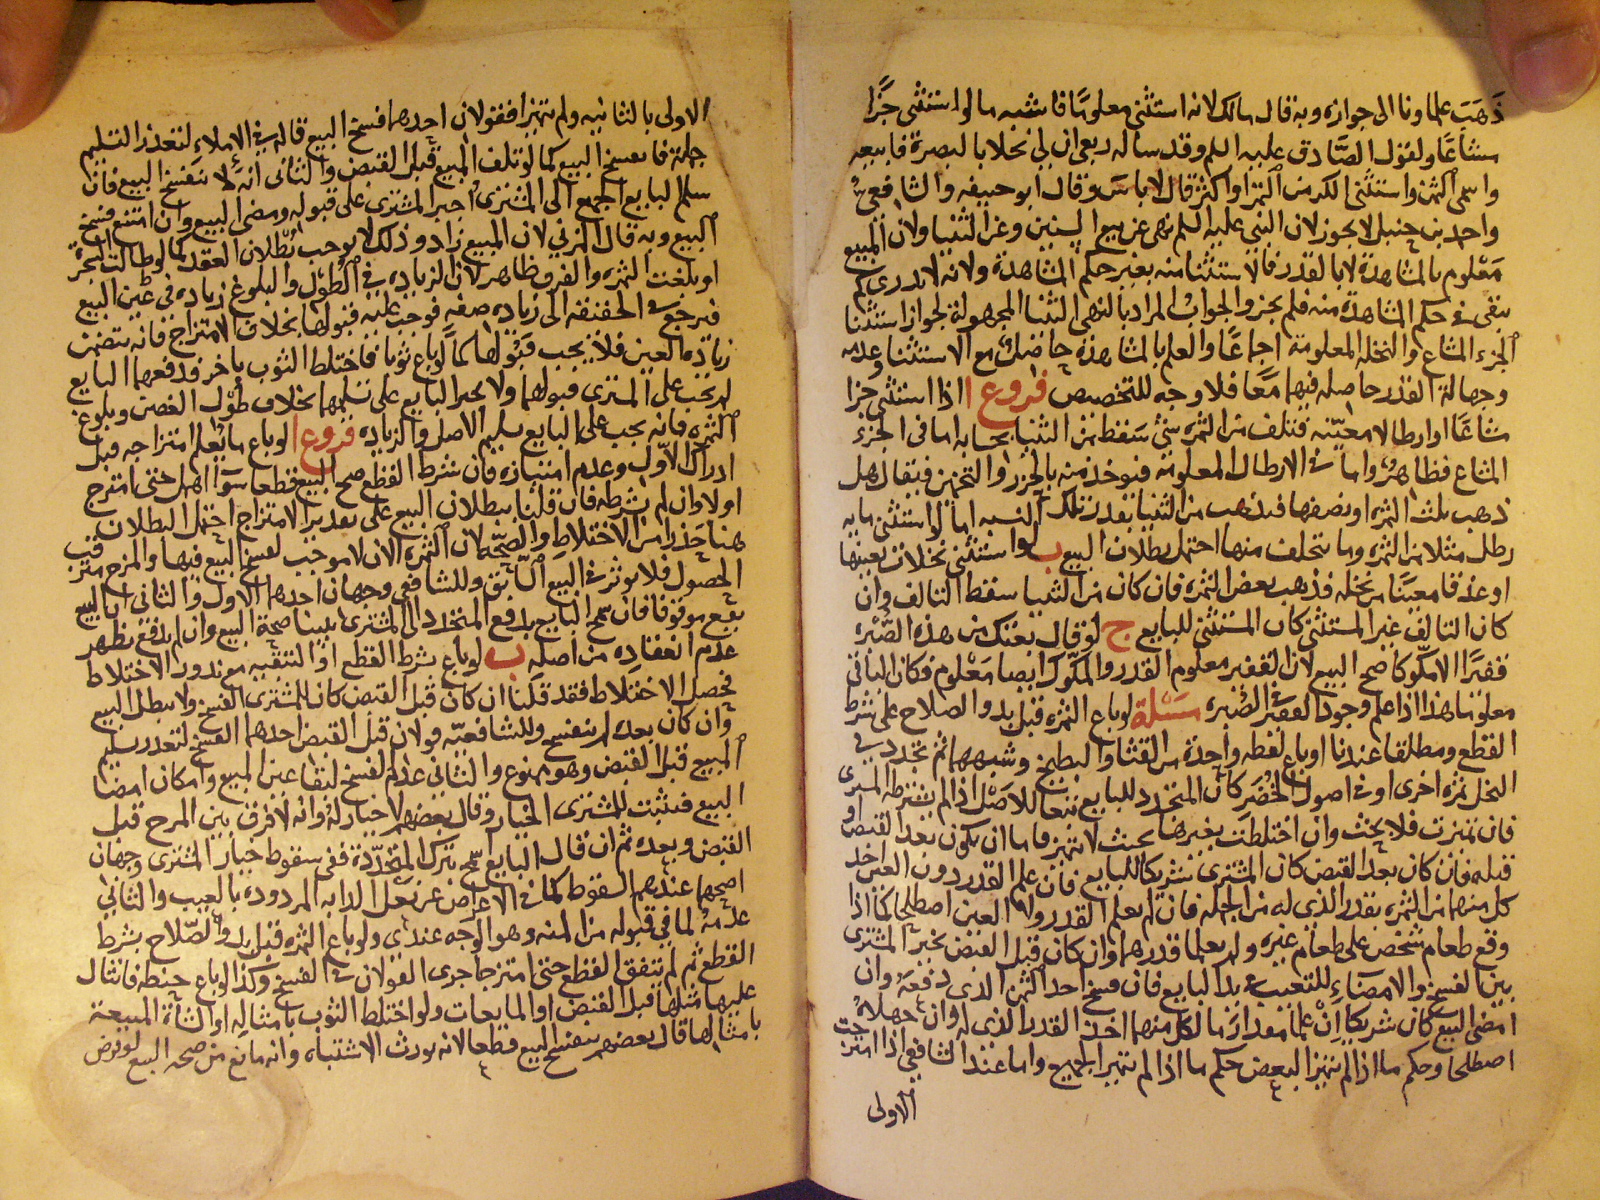 ذَهَبَ علماونا الى جوازه وبه قال مالك لانه استثنى معلومًا فاشبه ما لو استثنى جزًا
مشاعًا ولقول الصّادق عليه السلم وقد ساله ربعى ان لى نخلا بالبصرة فابيعه
واسمى الثمن واستثنى الكر من التمر او اكثر قال لا باس وقال ابو حنيفه والشافعى
واحمد بن حنبل لا يجوز لان النبى عليه السلم نهى عن بيع السنين وعن الثنيا ولان المبيع
معلوم بالمشاهدة لا بالقدر فالاستثنا منه بغير حكم المشاهدة ولانه لا ندرى كم
يبقى فى حكم المشاهدة منه فلم يجز والجواب المراد بالنهى الثنيا المجهولة لجواز استثنا
الجزء المشاع والنخله المعلومة اجماعًا والعلم بالمشاهدة حاصل مع الاستثنا وعدمه
وجهالة القدر حاصله فيهما معًا فلا وجه للتخصيص فروع ا اذا استثنى جزا
مشاعًا او ارطالا معيّنه فتلف من الثمره شئ سقط من الثنيا بحسابه اما فى الجزء
المشاع فظاهر واما فى الارطال المعلومه فيوخذ منه بالحزر والتخمين فيقال هل
ذهب ثلث الثمره او نصفها فيذهب من الثنيا بقدر تلك النسبه اما لو استثنى مايه
رطل مثلا من الثمره وما تخلف منها احتمل بطلان البيع ب لو استثنى نخلات بعينها
او عذقا معينًا من نخله فذهب بعض الثمره فان كان من الثنيا سقط التالف وان
كان التالف غير المستثنى كان المستثنى للبايع ج لو قال بعتك من هذه الصّبره
قفيزًا الا مكوكا صح البيع لان القفيز معلوم القدر والمكوك ايضا معلوم فكان الباقى
معلوما هذا اذا علم وجود القفيز فى الصّبره مسئلة لو باع الثمره قبل بدو الصلاح على شرط
القطع ومطلقا عندنا او باع لقطه واحدة من القثا والبطيخ وشبههما ثم تجدد فى
النخل ثمره اخرى او فى اصول الخُضَر كان المتجدد للبايع تبعا للاصل اذا لم يشترطه المشترى
فان تميزت فلا بحث وان اختلطت بغيرها بحيث لا تتميز فاما ان يكون بعد القبض او
قبله فان كان بعد القبض كان المشترى شريكا للبايع فان علم القدر دون العين اخذ
كل منهما من الثمره بقدر الذى له من الجمله فان لم يعلم القدر ولا العين اصطلحا كما اذا
وقع طعام شخص على طعام غيره ولم يعلما قدرهما وان كان قبل القبض تخير المشترى
بين الفسخ والامضاء للتعيب فى يد البايع فان فسخ اخذ الثمن الذى دفعه وان
امضى البيع كان شريكا ان علما مقدار ما لكل منهما اخذ القدر الذى له وان جهلاه
اصطلحا وحكم ما اذا لم يتميز البعض حكم ما اذا لم يتميز الجميع واما عند الشافعى اذا امتزجت
الاولى
الاولى بالثانيه ولم تتميزا فقولان احدهما فسخ البيع قاله فى الاملاء لتعذر التسليم
جملة فانفسخ البيع كما لو تلف المبيع قبل القبض والثانى انه لا ينفسخ البيع فان
سلم البايع الجميع الى المشترى اجبر المشترى على قبوله ومضى البيع وان امتنع فسخ
البيع وبه قال المزنى لان المبيع زاد وذلك لا يوجب بطلان العقد كما لو طالت الشجرة
او بلغت الثمره والفرق ظاهر لان الزيادة فى الطول والبلوغ زيادة فى عين المبيع
فيرجع فى الحقيقه الى زياده صفه فوجب عليه قبولها بخلاف الامتزاج فانه يتضمن
زيادة العين فلا يجب قبولها كما لو باع ثوبا فاختلط الثوب باخر فدفعهما البايع
لم يجب على المشترى قبولهما ولا يجبر البايع على تسليمهما بخلاف طول الغصن وبلوغ
الثمره فانه يجب على البايع تسليم الاصل والزياده فروع ا لو باع ما يعلم امتزاجه قبل
ادراك الاول وعدم امتيازه فان شرط القطع صح البيع قطعا سوآ اهمل حتى امتزج
اولا وان لم يشرطه فان قلنا ببطلان البيع على تقدير الامتزاج احتمل البطلان
هنا حذرا من الاختلاط والصّحّه لان الثمره الان لا موجب لفسخ البيع فيها والمزج مترقب
الحصول فلا يوثر فى البيع السابق وللشافعى وجهان احدهما الاول والثانى ان البيع
يقع موقوفا فان سمح البايع بدفع المتجدد الى المشترى تبينا صحة البيع وان لم يدفع ظهر
عدم انعقاده من اصله ب لو باع بشرط القطع او التبقيه مع ندور الاختلاط
فحصل الاختلاط فقد قلنا ان كان قبل القبض كان للمشترى الفسخ ولا يبطل البيع
وان كان بعده لم ينفسخ وللشافعيّه قولان قبل القبض احدهما الفسخ لتعذر تسليم
المبيع قبل القبض وهو ممنوع والثانى عدم الفسخ لبقا عين المبيع وامكان امضا
البيع فيثبت للمشترى الخيار وقال بعضهم لا خيار له وانه لا فرق بين المزج قبل
القبض وبعده ثم ان قال البايع اسمح بترك المتجدّدة ففى سقوط خيار المشترى وجهان
اصحهما عندهم السقوط كما فى الاعراض عن نعل الدابه المردودة بالعيب والثانى
عدمه لما فى قبوله من المنه وهو الوجه عندى ولو باع الثمره قبل بدو الصّلاح بشرط
القطع ثم لم يتفق القطع حتى امتزجا جرى القولان فى الفسخ وكذا لو باع حنطه فانثال
عليها مثلها قبل القبض او المايعات ولو اختلط الثوب بامثاله او الشاة المبيعة
بامثالها قال بعضهم ينفسخ البيع قطعا لانه يورث الاشتباه وانه مانع من صحه البيع لو فرض